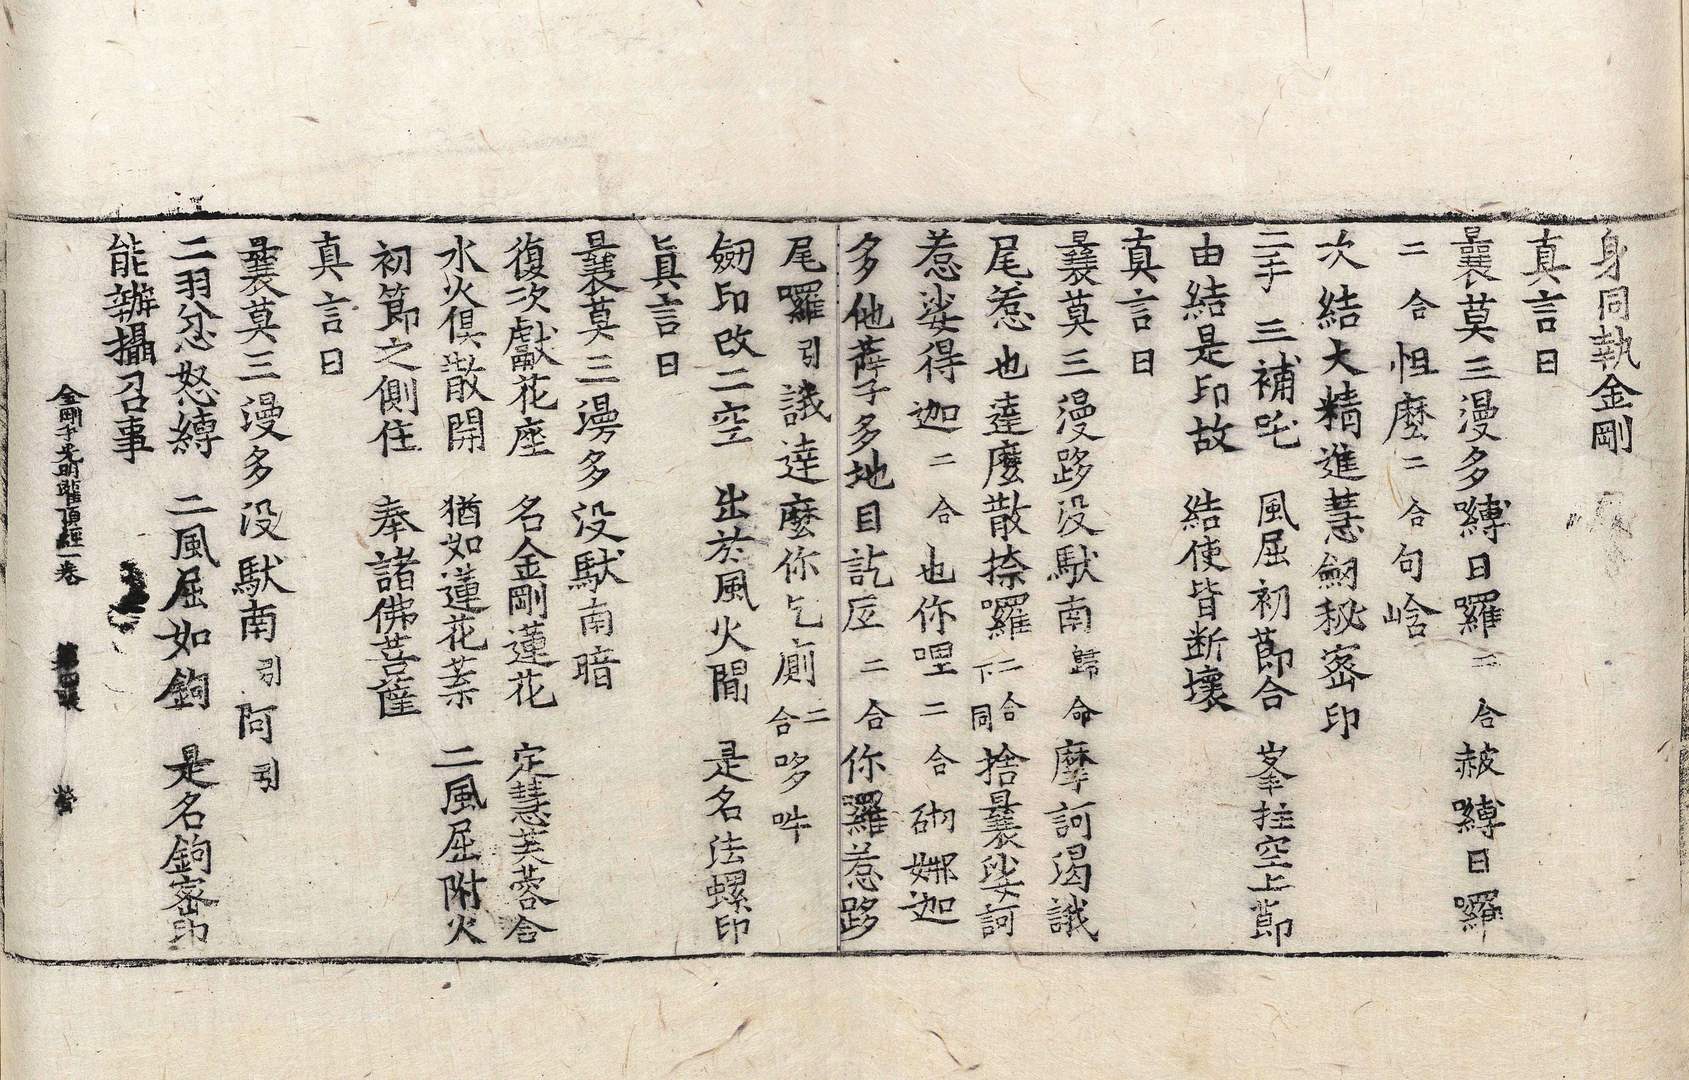 身同執金剛
真言曰
曩莫三漫多嚩日囉二合赧嚩日囉
二合怛麽二合句唅
次結大精進慧劒秘密印
二手三補吒　風屈初節合　峯拄空上節
由結是印故　結使皆斷壞
真言曰
曩莫三漫跢没馱南歸命摩訶渴誐
尾惹也達麽散捺囉二合下同捨曩娑訶
惹娑得迦二合也你哩二合砌娜迦
多他蘖多地目訖底二合你羅惹跢
尾囉引誐達麽你乞廁二合哆吽
劒印改二空　出於風火間　是名法螺印
真言曰
曩莫三漫多没馱南暗
復次獻花座　名金剛蓮花　定慧芙蓉合
水火俱散開　猶如蓮花葉　二風屈附火
初節之側住　奉諸佛菩薩
真言曰
曩莫三漫多没馱南引阿引
二羽忿怒縛　二風屈如鉤　是名鉤密印
能辦攝召事
金剛手光明灌頂經一卷